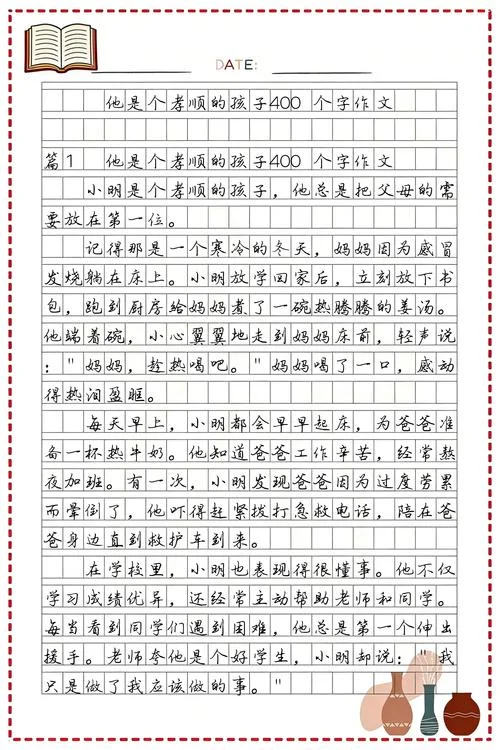 DATE:
他是个孝顺的孩子400 个字作文
篇1 他是个孝顺的孩子400 个字作文
小明是个孝顺的孩子，他总是把父母的需
要放在第一位。
记得那是一个寒冷的冬天，妈妈因为感冒
发烧躺在床上。小明放学回家后，立刻放下书
包，跑到厨房给妈妈煮了一碗热腾腾的姜汤。
他端着碗，小心翼翼地走到妈妈床前，轻声说
："妈妈，趁热喝吧。"妈妈喝了一口，感动
得热泪盈眶。
每天早上，小明都会早早起床，为爸爸准
备一杯热牛奶。他知道爸爸工作辛苦，经常熬
夜加班。有一次，小明发现爸爸因为过度劳累
而晕倒了，他吓得赶紧拨打急救电话，陪在爸
爸身边直到救护车到来。
在学校里，小明也表现得很懂事。他不仅
学习成绩优异，还经常主动帮助老师和同学。
每当看到同学们遇到困难，他总是第一个伸出
援手。老师夸他是个好学生，小明却说："我
只是做了我应该做的事。"